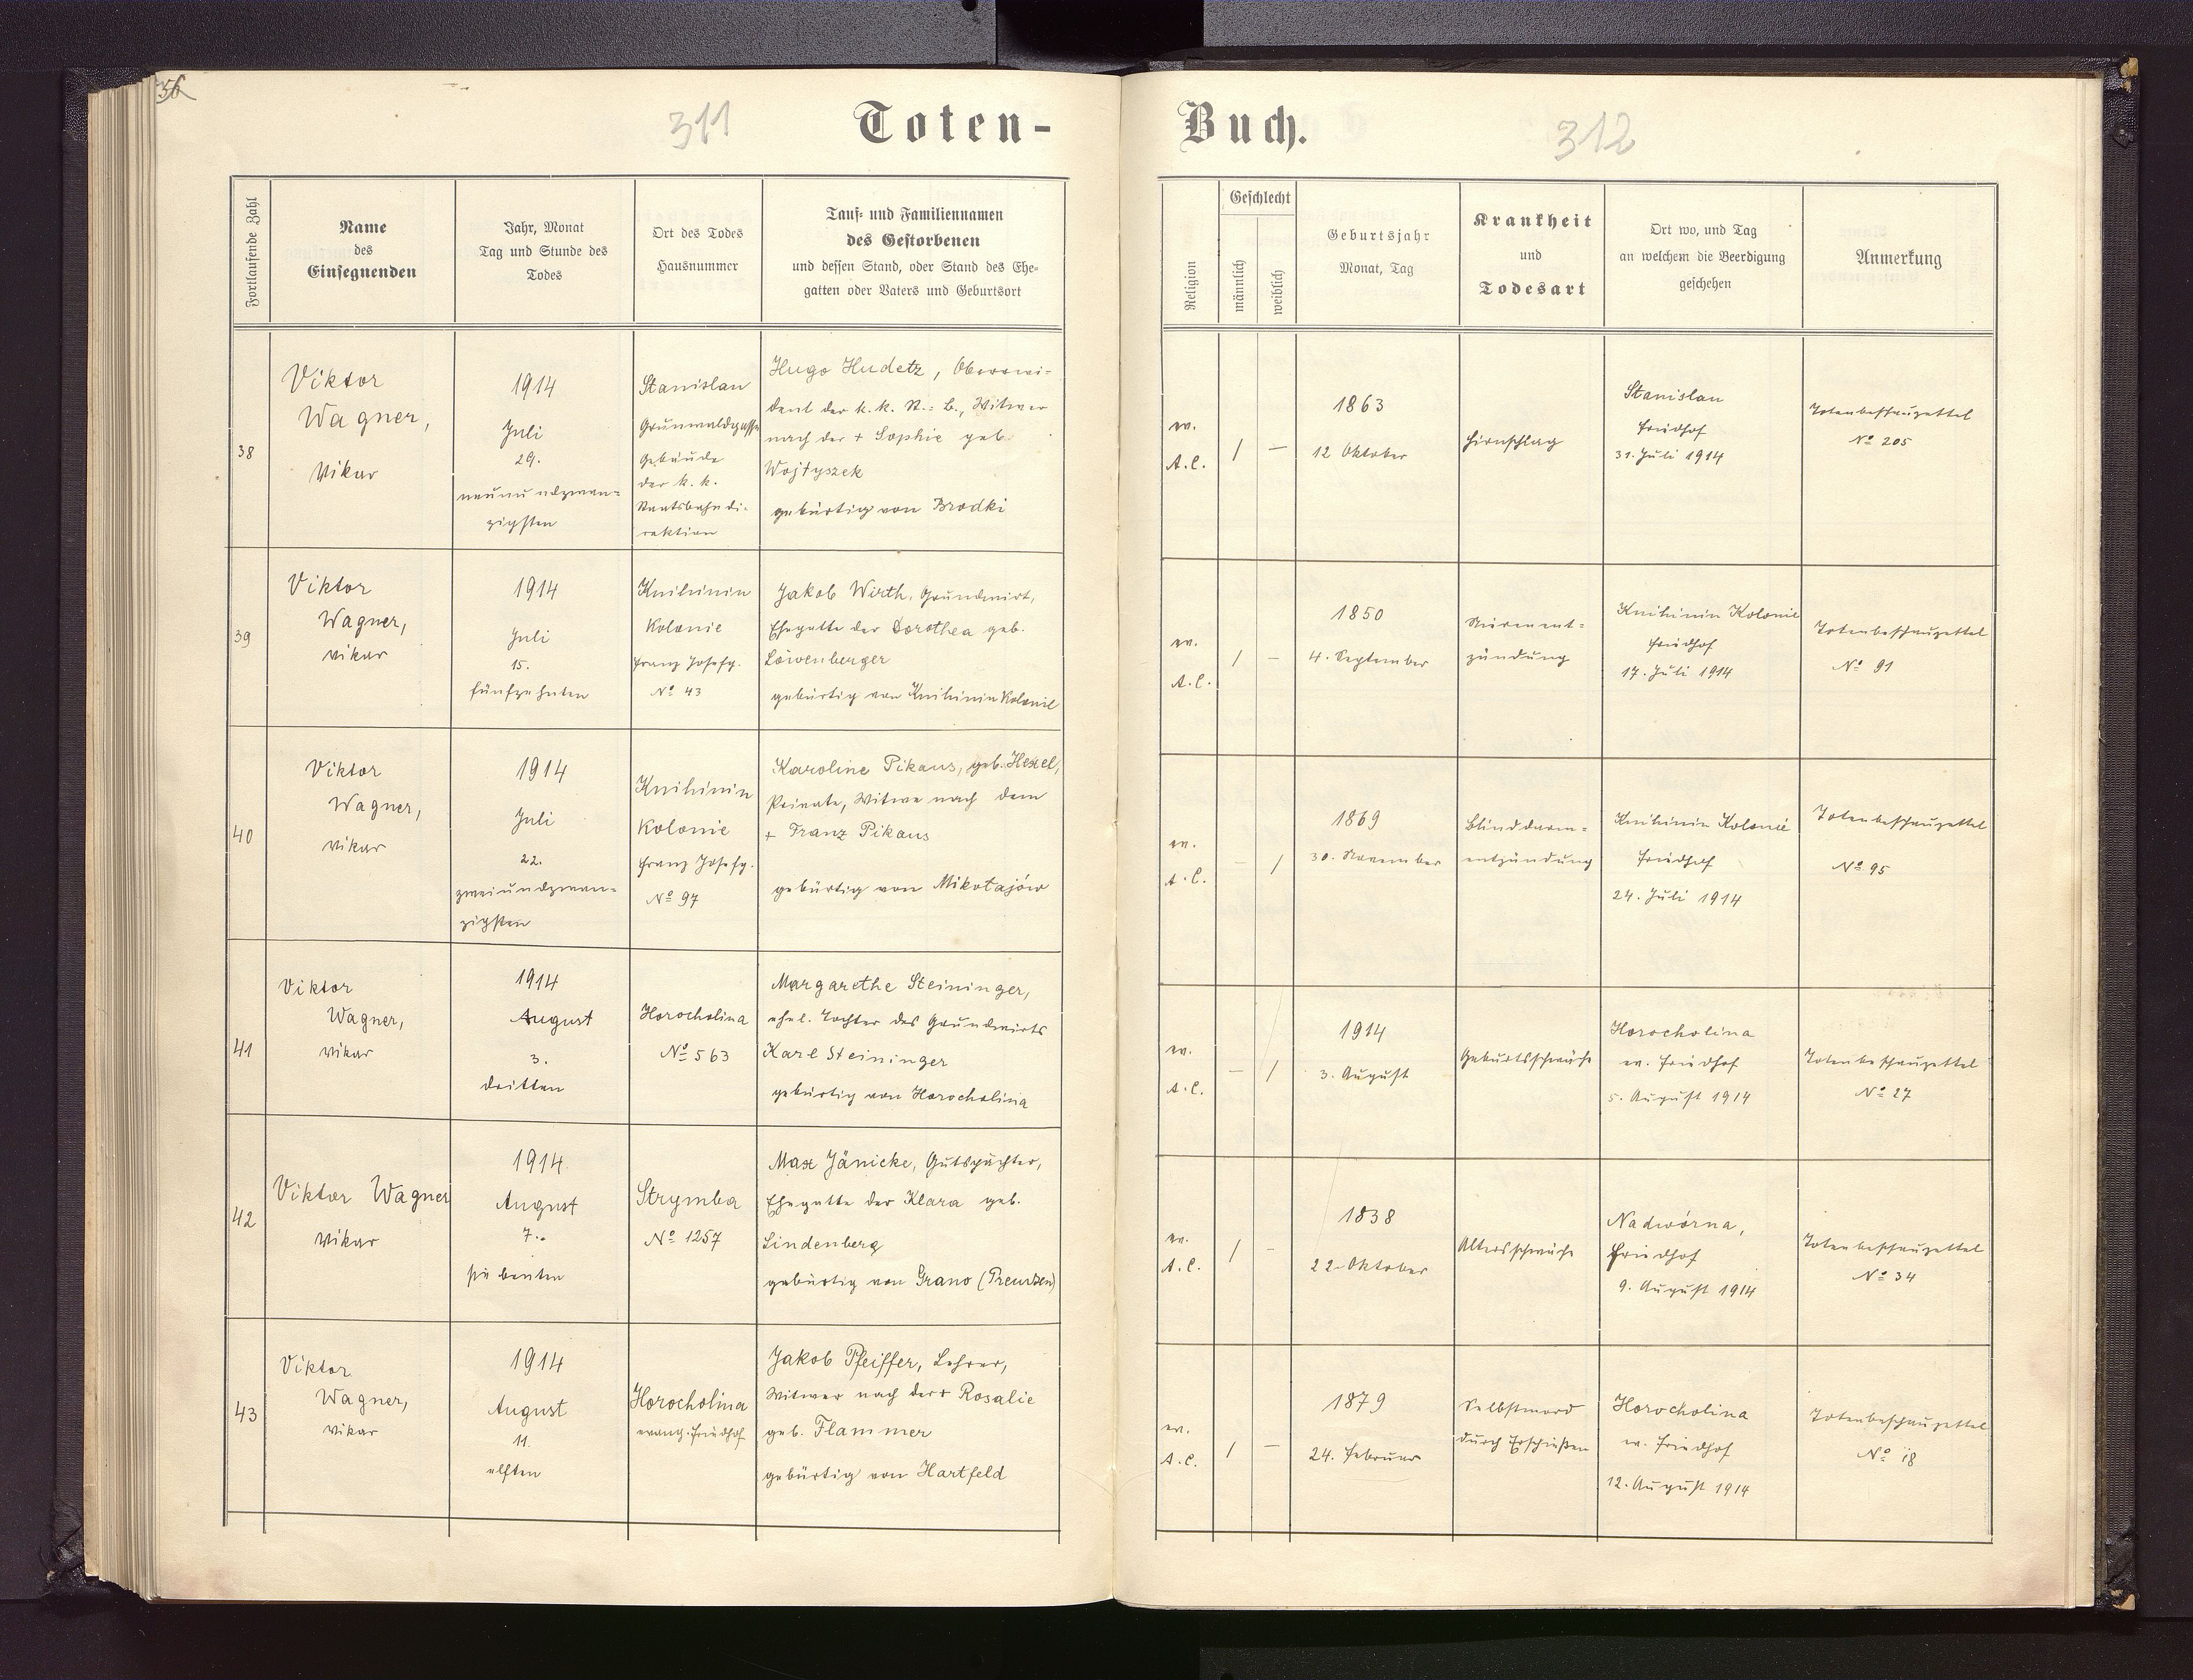 56
311
Toten-
Fortlaufende Zahl
Name
des
Einsegnenden
Jahr, Monat
Tag und Stunde des
Todes
Ort des Todes
Hausnummer
Tauf- und Familiennamen
des Gestorbenen
und dessen Stand, oder Stand des Ehe-
gatten oder Vaters und Geburtsort
38
Viktor
Wagner,
Vikar
1914
Juli
29.
neunundzwan=
zigsten
Stanislau
Grunwaldgasse
Gebäude
der k. k.
Staatsbahndi-
rektion
Hugo Hudetz, Oberrevi=
dent der k. k. St.= B., Witwer
nach der + Sophie geb.
Wojtyszek
gebürtig von Brodki
39
Viktor
Wagner,
Vikar
1914
Juli
15.
fünfzehnten
Knihinin
Kolonie
Franz Josefg.
No 43
Jakob Wirth, Grundwirt,
Ehegatte der Dorothea geb.
Löwenberger
gebürtig von Knihinin Kolonie
40
Viktor
Wagner,
Vikar
1914
Juli
22.
zweiundzwan=
zigsten
Knihinin
Kolonie
Franz Josefg.
No 97
Karoline Pikaus, geb. Hexel,
Private, Witwe nach dem
+ Franz Pikaus
gebürtig von Mikołajów
41
Viktor
Wagner,
Vikar
1914
August
3.
dritten
Horocholina
No 563
Margarethe Steininger,
ehel. Tochter des Grundwirts
Karl Steininger
gebürtig von Horocholina
42
Viktor Wagner
Vikar
1914
August
7.
siebenten
Strymba
No 1257
Max Jänicke, Gutspächter,
Ehegatte der Klara geb.
Lindenberg
gebürtig von Grano (Preußen)
43
Viktor
Wagner,
Vikar
1914
August
11.
elften
Horocholina
evang. Friedhof
Jakob Pfeiffer, Lehrer,
Witwer nach der + Rosalie
geb. Flammer
gebürtig von Hartfeld
Buch.
312
Religion
Geschlecht
männlich
weiblich
Geburtsjahr
Monat, Tag
Krankheit
und
Todesart
Ort wo, und Tag
an welchem die Beerdigung
geschehen
Anmerkung
ev.
A.C.
/
—
1863
12 Oktober
Hirnschlag
Stanislau
Friedhof
31. Juli 1914
Totenbeschauzettel
No 205
ev.
A.C.
/
—
1850
4. September
Nierenent=
zündung
Knihinin Kolonie
Friedhof
17. Juli 1914
Totenbeschauzettel
No 91
ev.
A.C.
—
/
1869
30. November
Blinddarm=
entzündung
Knihinin Kolonie
Friedhof
24. Juli 1914
Totenbeschauzettel
No 95
ev.
A.C.
—
/
1914
3. August
Geburtsschwäche
Horocholina
ev. Friedhof
5. August 1914
Totenbeschauzettel
No 27
ev.
A.C.
/
—
1838
22. Oktober
Altersschwäche
Nadwórna,
Friedhof
9. August 1914
Totenbeschauzettel
No 34
ev.
A.C.
/
—
1879
24. Februar
Selbstmord
durch Erschießen
Horocholina
ev. Friedhof
12. August 1914
Totenbeschauzettel
No 18